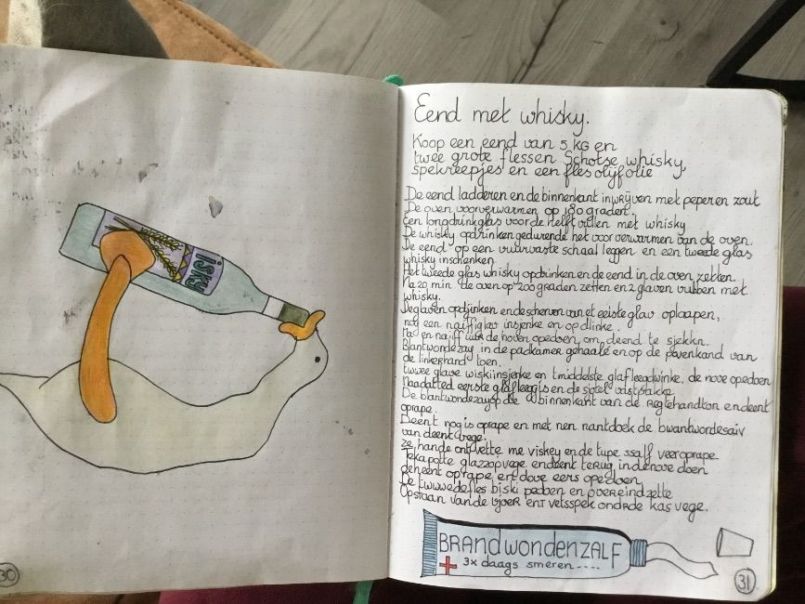 isky
30
Eend met whisky.
Koop een eend van 5 KG en
twee grote flessen Schotse whisky,
spekreepjes en een fles olijfolie
De eend ladderen en de binnenkant inwrijven met peper en zout
De oven voorverwarmen op 180 graden.
Een longdrinkglas voor de helft vullen met whisky
De whisky opdrinken gedurende het voorverwarmen van de oven.
De eend op een vuurvaste schaal leggen en een tweede glas
whisky inschenken.
Het tweede glas whisky opdrinken en de eend in de oven zetten.
Na 20 min de oven op 200 graden zetten en 2 glaven vullen met
whisky.
De glaven opdjinken en de scherven van et eeiste glav oploapen,
nog een naiff glas insjenke en opdlinke.
en naiff de noven opedoen, om deend te sjekkn.
Blantwondezay in de padkamer gehaale en op de povenkand van
de linkerhand toen.
twwee glave wiski insjenke en t middelste glaf leegdwinke. de nove opedoen
eerste glaf leeg en de vastpakke.
De op de binnenkant van de en deent
oprape.
Deent nog is oprape en met nen nantdoek de
van deent vege.
hande ontvette me viskey en de tupe ssalf veeroprape.
glazzopvege en deent terug in denove doen
deneent oprape en dove eers opedoen.
De twwwedefles biski pedoen en
Opstaan van de vjoer ent vetsspek ondrde kas vege.
BRANDWONDENZALF
3x daags smeren....
31